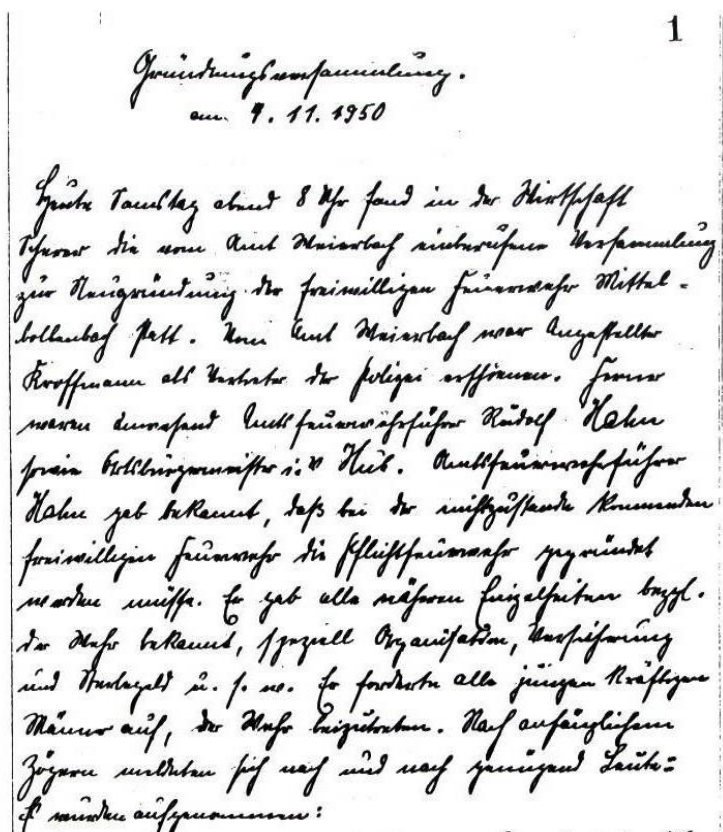 1
Gründungsversammlung.
am 4. 11. 1950
Heute Samstag abend 8 Uhr fand in der Wirtschaft
Scherer die vom Amt Weierbach einberufene Versammlung
zur Neugründung der freiwilligen Feuerwehr Mittel-
bollenbach statt. Vom Amt Weierbach war Angestellter
Kroffmann als Vertreter der Polizei erschienen. Ferner
waren anwesend Amtsfeuerwehrführer Rudolf Hahn
sowie Ortsbürgermeister i.V. Amtsfeuerwehrführer
Hahn gab bekannt, daß bei der nichtzustande kommenden
freiwilligen Feuerwehr die Pflichtfeuerwehr gegründet
werden müsse. Er gab alle näheren Einzelheiten bezgl.
der Wehr bekannt, speziell Organisation, Versicherung
und Sterbegeld u. s. w. Er forderte alle jungen kräftigen
Männer auf, der Wehr beizutreten. Nach anfänglichem
Zögern meldeten sich nach und nach genügend Leute:
wurden aufgenommen: